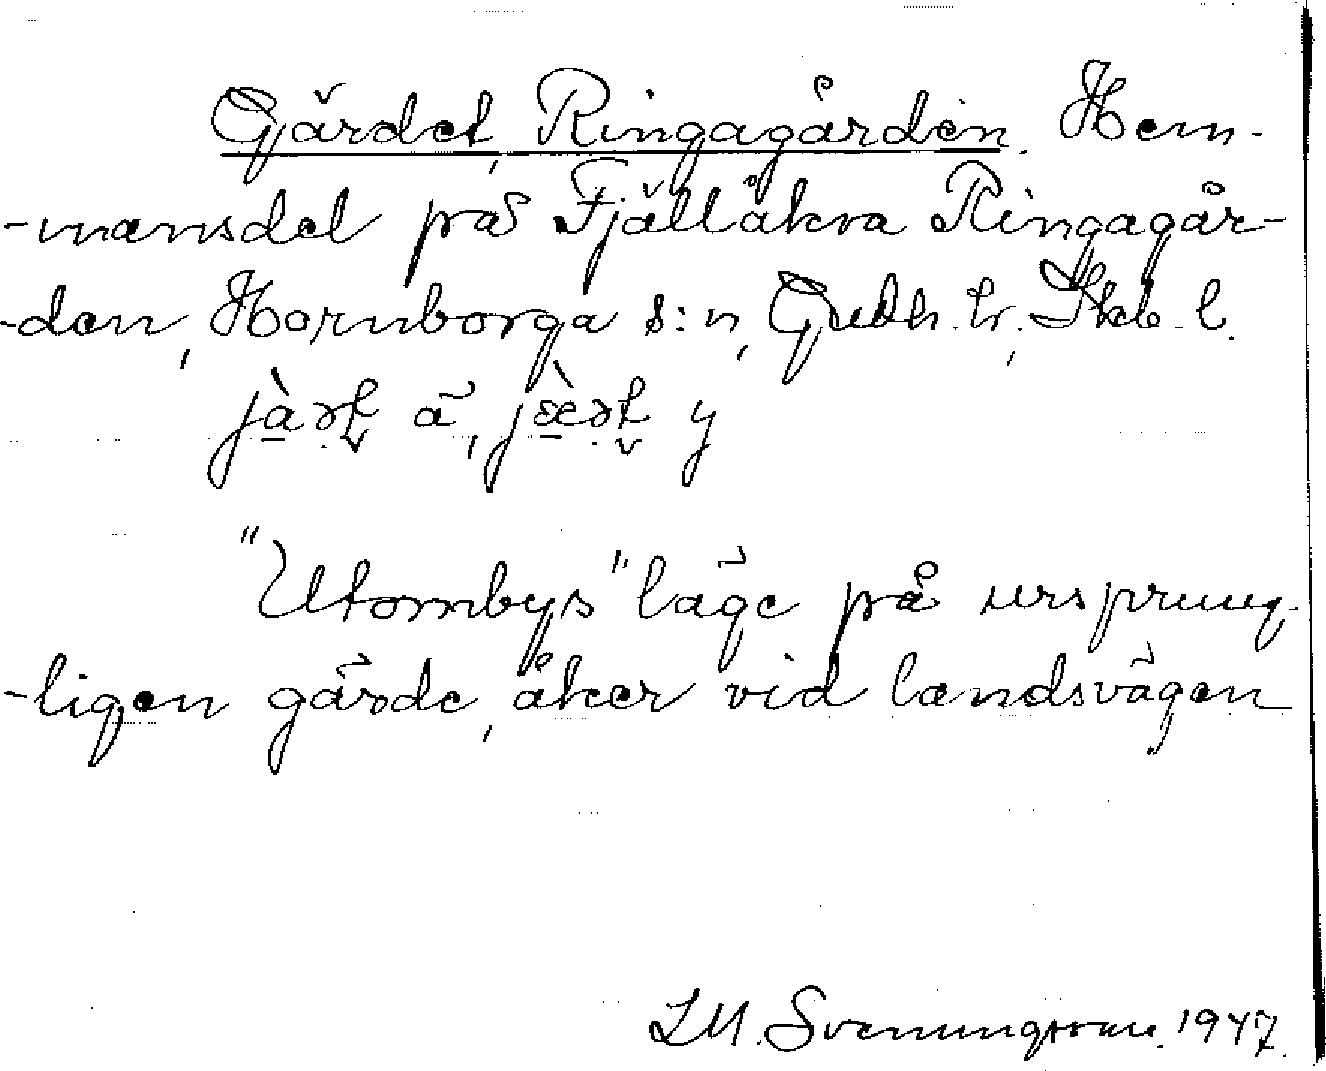 Gärdet, Ringagården. Hem-
-mansdel på Fjällåkra Ringagår-
-den, Hornborga s:n, Gudh. hr, Skb. l.
"Utombys" läge på ursprung-
-ligen gärde, åker vid landsvägen
LM. Svenungsson. 1947.